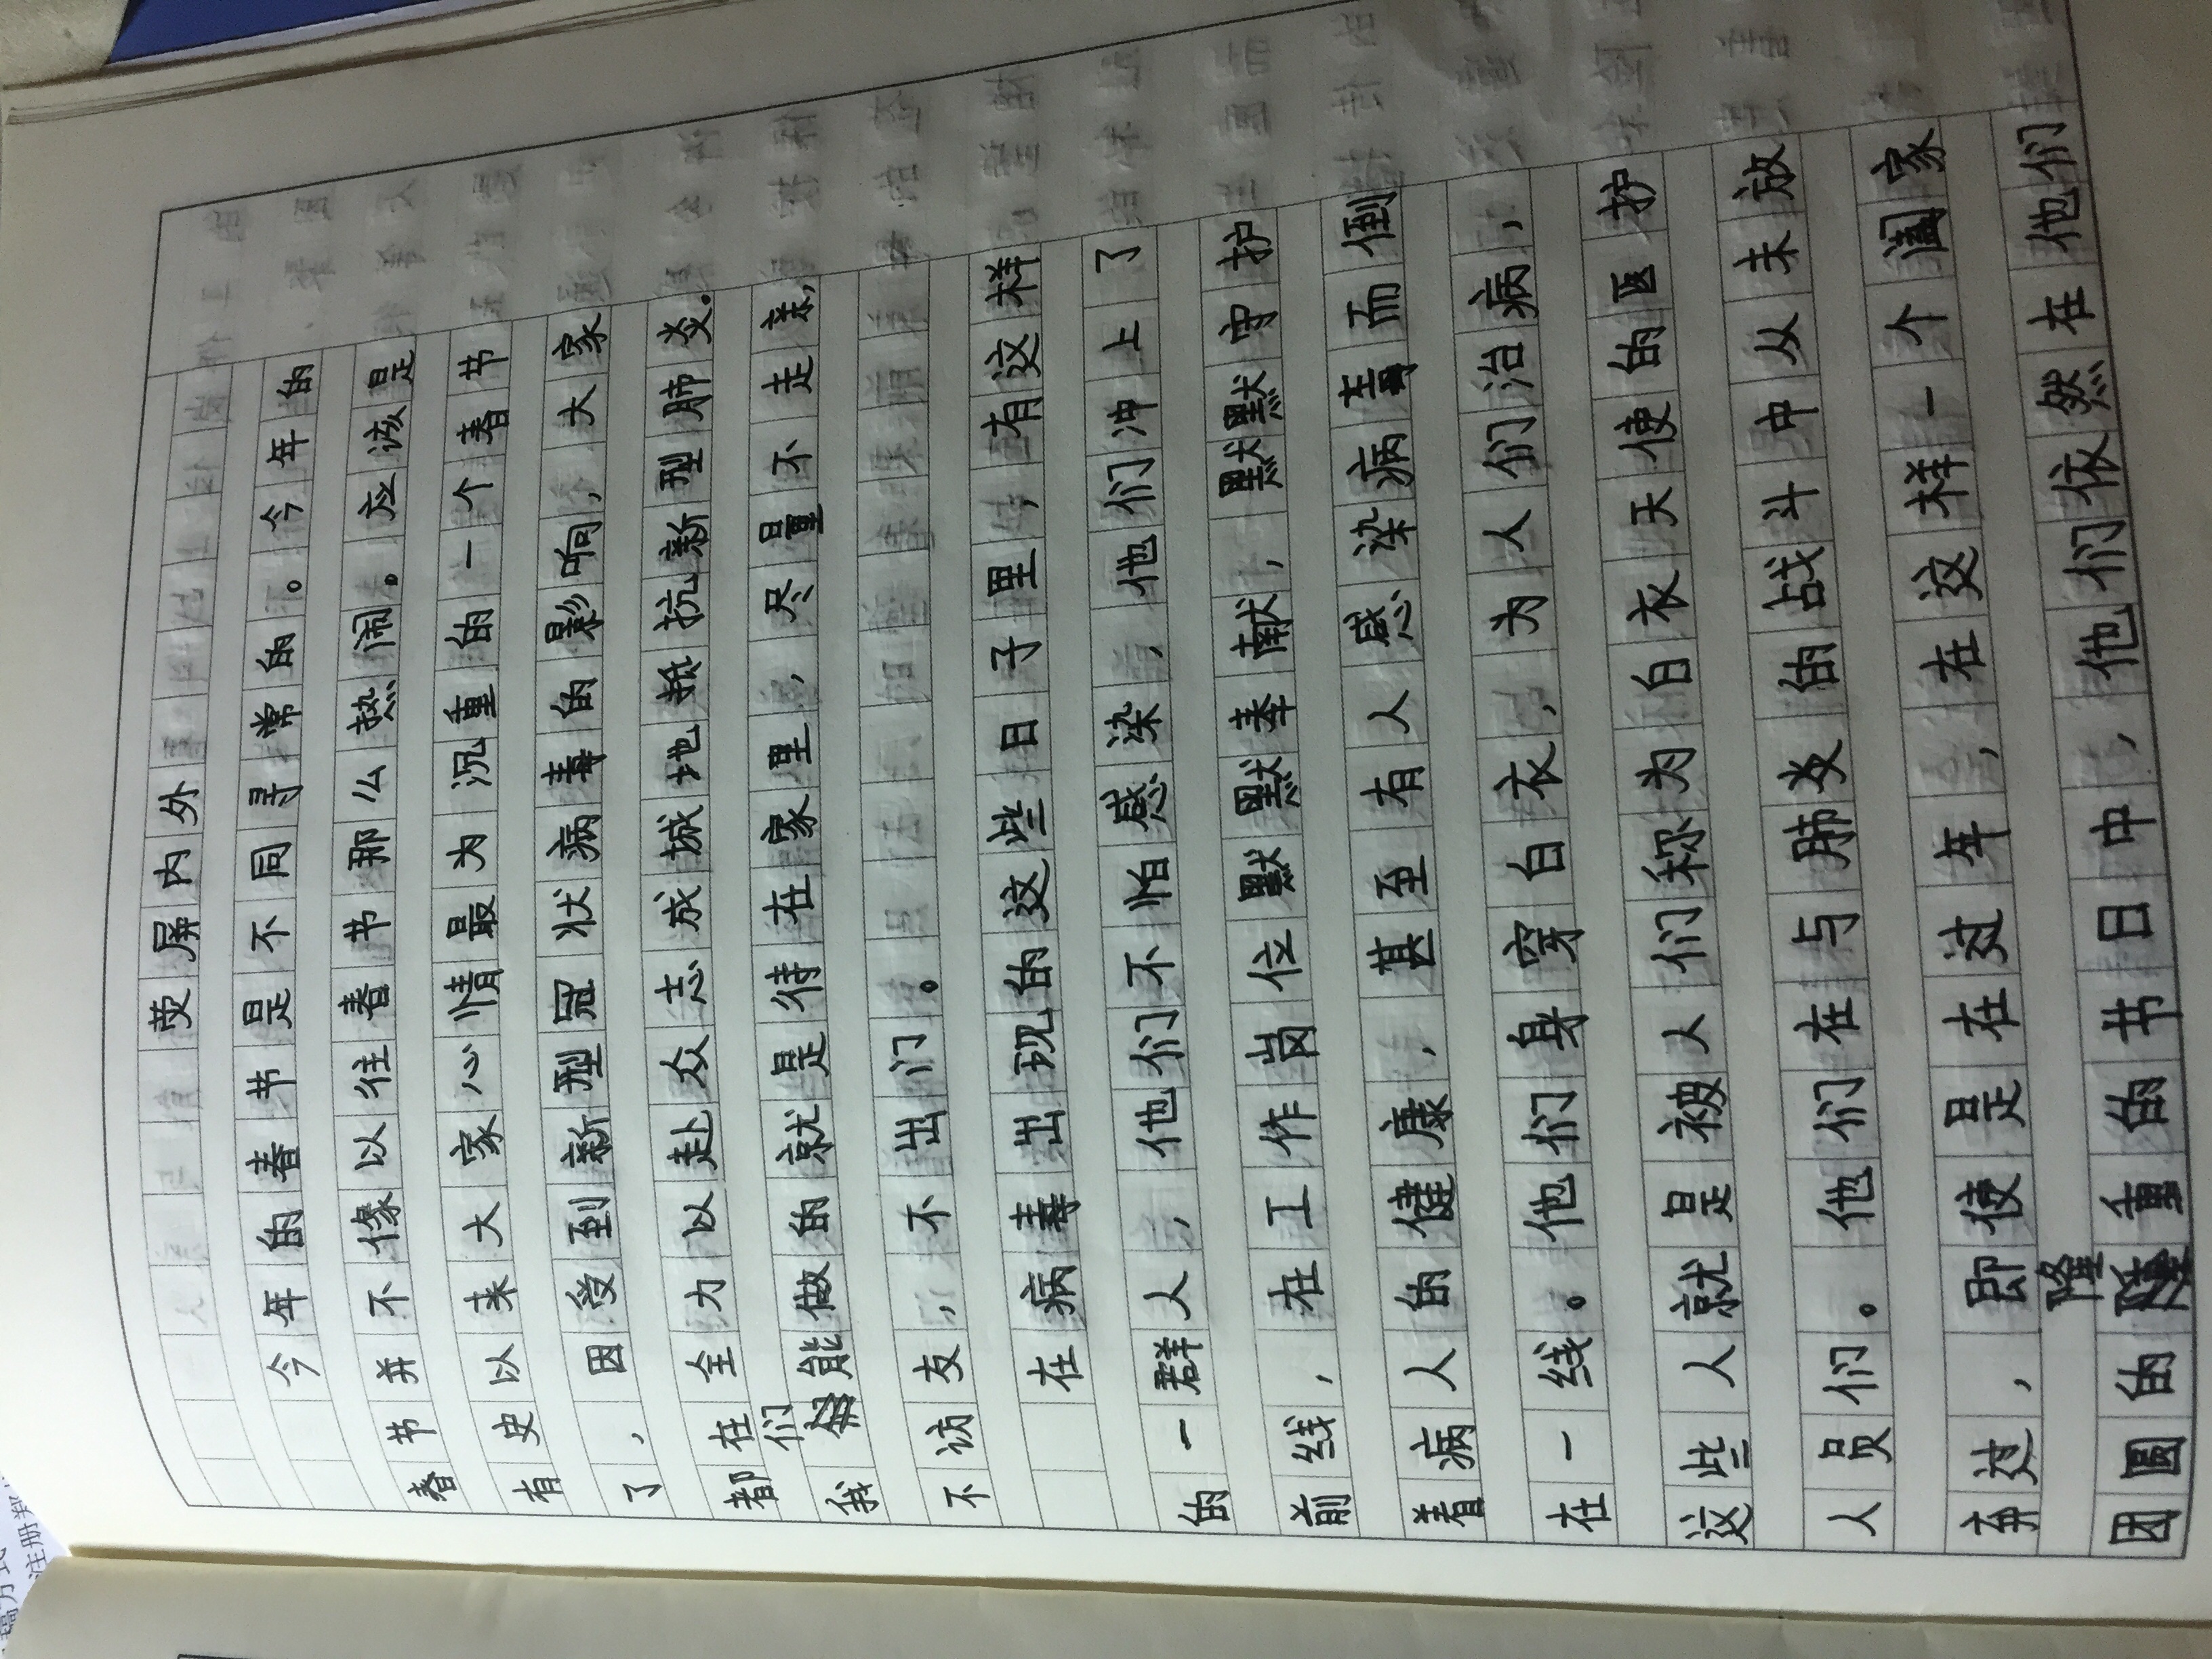 荧屏内外
今年的春节是不同寻常的。今年的
春节并不像以往春节那么热闹。应该是
有史以来大家心情最为沉重的一个春节
了,因受到新型冠状病毒的影响,大家
都在全力以赴众志成城地抵抗新型肺炎.
我们能做的就是待在家里,尽量不走亲,
不访友,不出门。
在病毒出现的这些日子里,有这样
的一群人,他们不怕感染,他们冲上了
前线,在工作岗位默默奉献,默默守护
着病人的健康,甚至有人感染病毒而倒
在一线。他们身穿白衣,为人们治病,
这些人就是被人们称为白衣天使的医护
人员们。他们在与肺炎的战斗中从未放
弃过,即使是在过年,在这样一个阖家
团圆的隆重的节日中,他们依然在他们
稿方式
注册邦